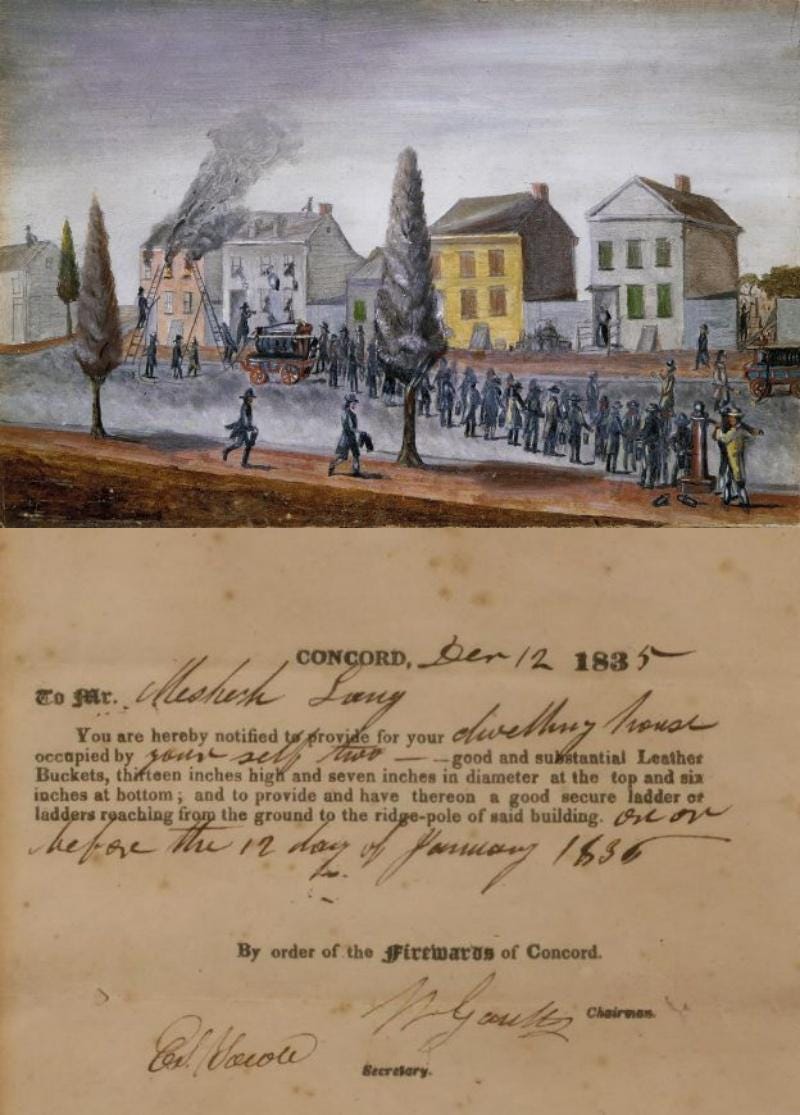 CONCORD, Dec 12 1835
To Mr. Meshech Lang
You are hereby notified to provide for your dwelling house
occupied by your self two — — good and substantial Leather
Buckets, thirteen inches high and seven inches in diameter at the top and six
inches at bottom; and to provide and have thereon a good secure ladder or
ladders reaching from the ground to the ridge-pole of said building. on or
before the 12 day of January 1836
By order of the Firewards of Concord.
Chairman.
Secretary.